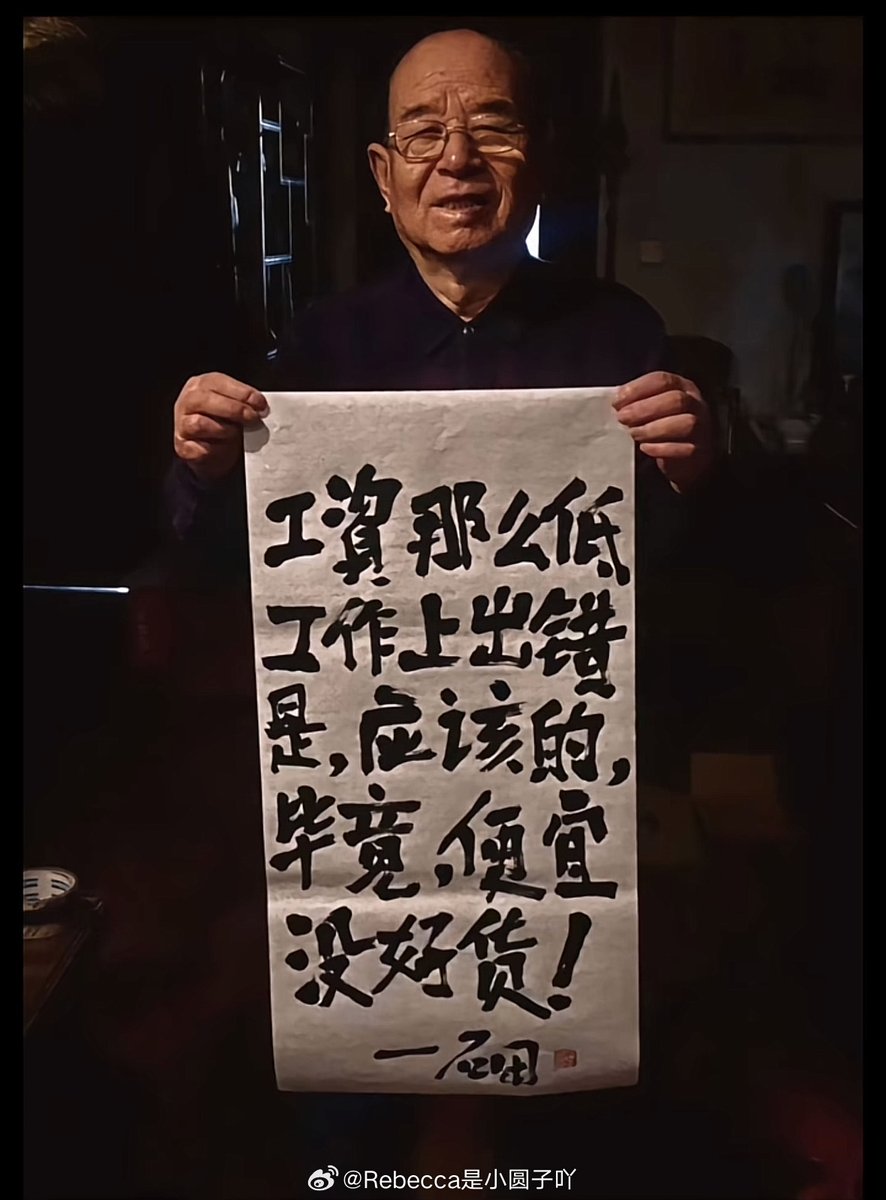 工資那么低
工作上出错
是,应该的,
毕竟,便宜
没好货!
一石田
@Rebecca是小圆子吖